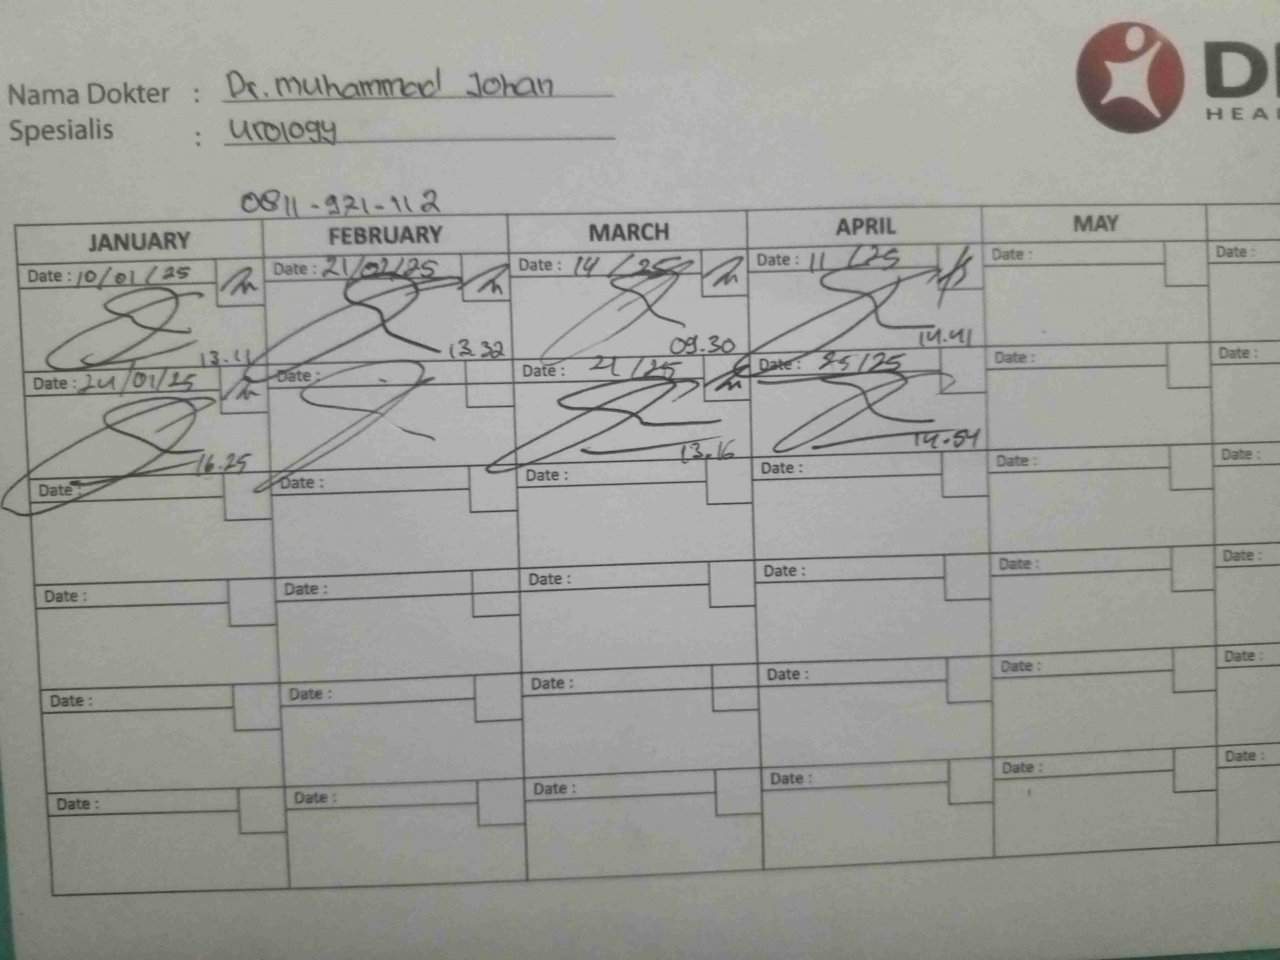 Nama Dokter : Dr. Muhammad Johan
Spesialis : Urology
HEAL
0811-921-112
JANUARY FEBRUARY MARCH APRIL MAY
Date : 10/01/25 Date : 21/02/25 Date : 14 /25 Date : 11 /25 Date : Date :
13.11 13.32 09.30 14.41
Date : 24/01/25 Date : Date : 21 /25 Date : 25/25 Date : Date :
16.25 13.16 14.54
Date : Date : Date : Date : Date : Date :
Date : Date : Date : Date : Date : Date :
Date : Date : Date : Date : Date : Date :
Date : Date : Date : Date : Date : Date :